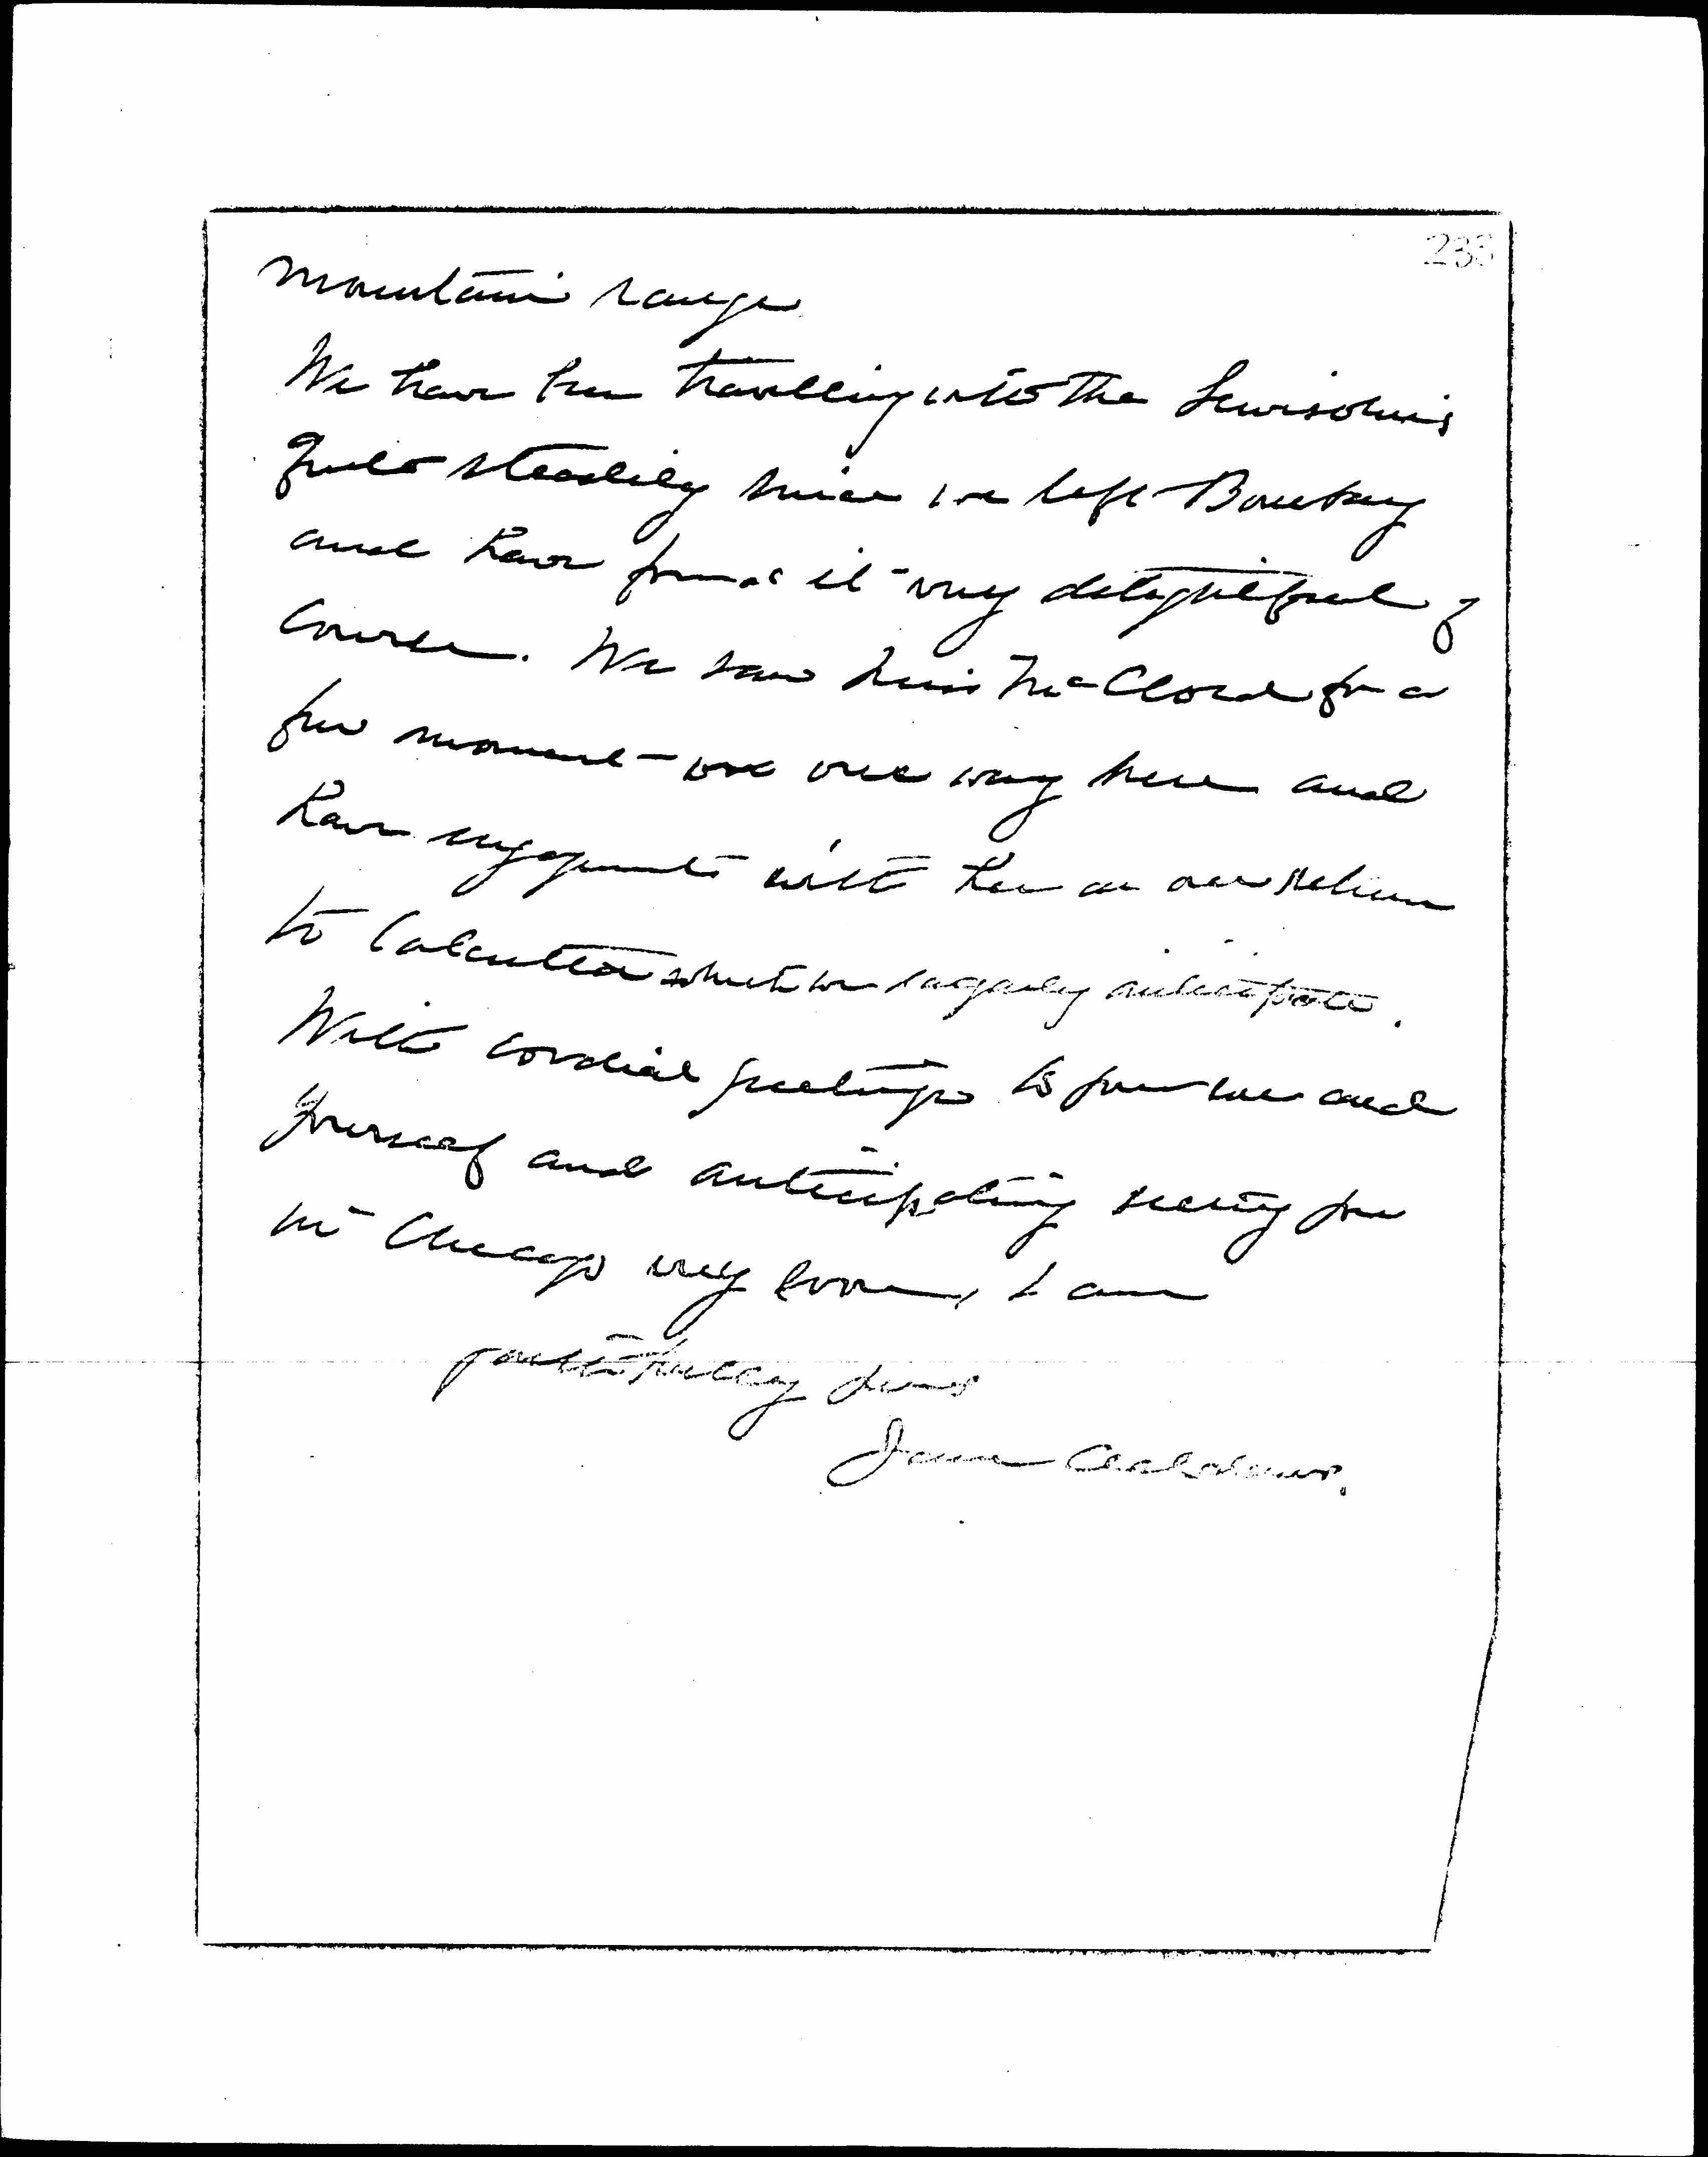 233
mountain range
We have been travelling with the Lewisohns
quite steadily since we left Bombay
and have found it very delightful of
course. We saw Miss McCloed for a
few moment on our way here and
have engagements with her on our return
to Calcutta which we eagerly anticipate.
With cordial greetings to your and
yourself and anticipating seeing you
in Chicago very soon, I am
faithfully yours
Jane Addams.